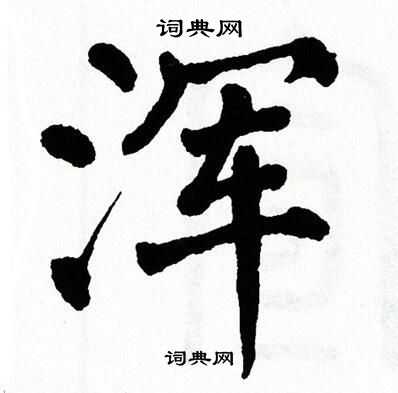 词典网
浑
词典网